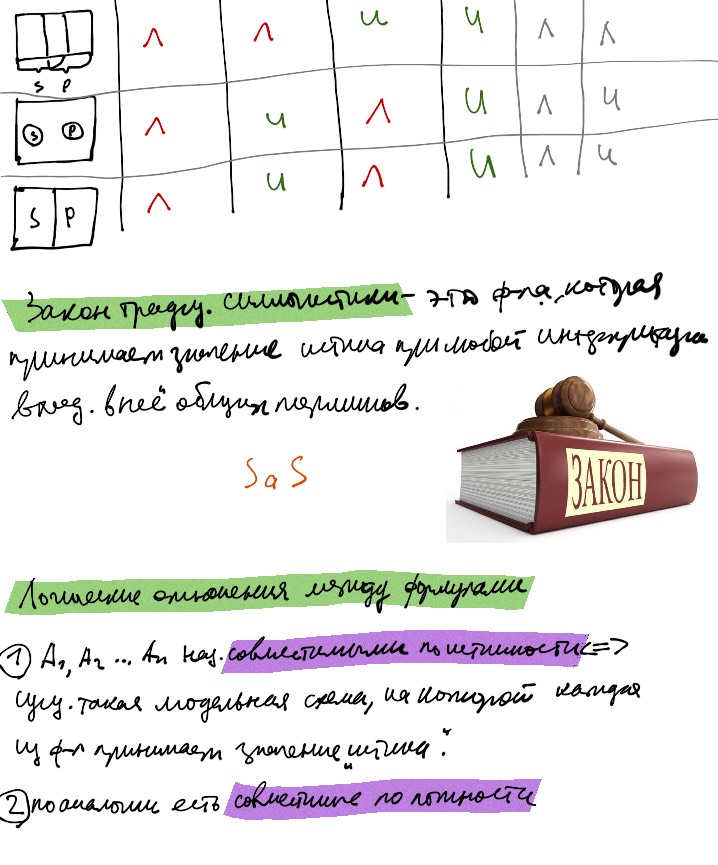 Л Л И И Л Л
S P
S P Л И Л И Л И
S P Л И Л И Л И
Закон традиц. силлогистики - это ф-ла, которая
принимает значение истина при любой интерпретации
вход. в неё общих терминов.
ЗАКОН
SaS
Логические отношения между формулами
① A₁, A₂ ... An наз. совместимыми по истинности <=>
сущ. такая модельная схема, на которой каждая
из ф-л принимает значение "истина".
② по аналогии есть совместные по ложности